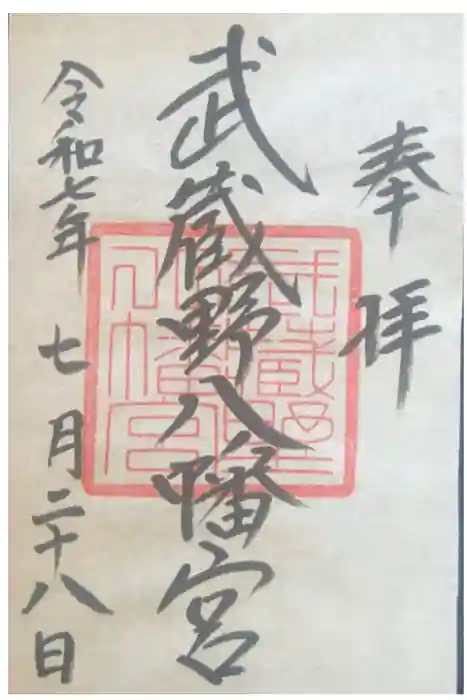 奉拝
武蔵野八幡宮
武蔵野
八幡宮
令和七年七月二十八日